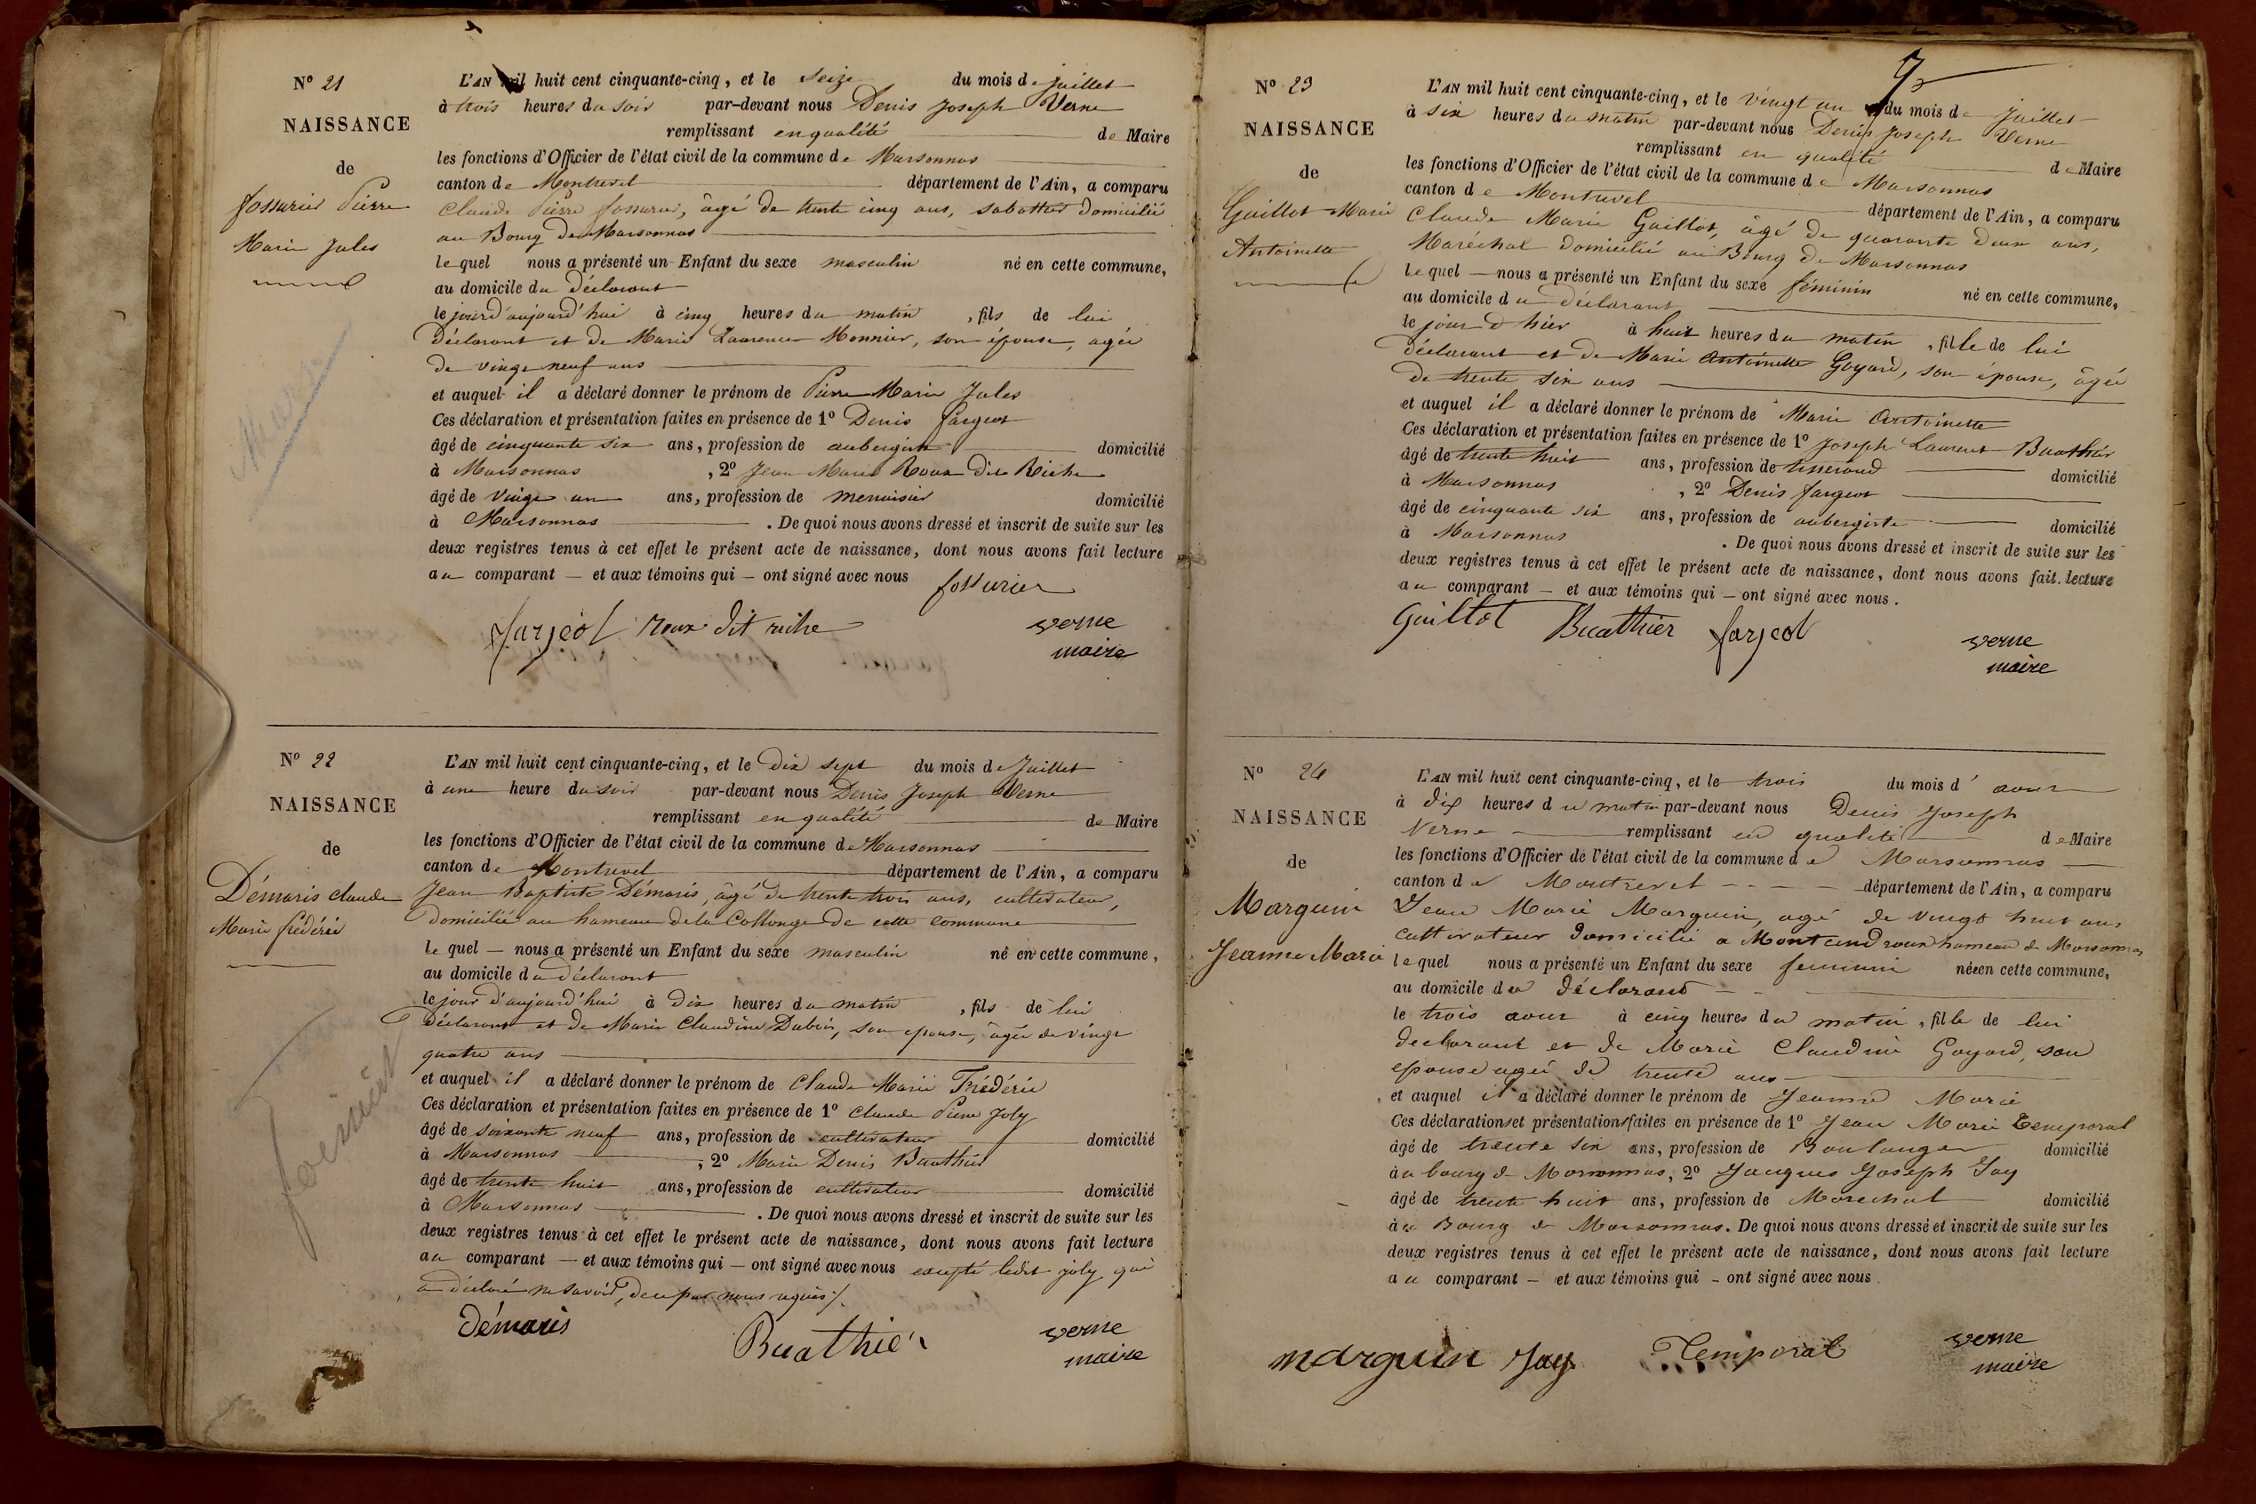 N° 21
NAISSANCE
de
fossurier Pierre
Marie Jules
L'AN mil huit cent cinquante-cinq, et le seize du mois de juillet
à trois heures du soir par-devant nous Denis Joseph Verne
remplissant en qualité de Maire
les fonctions d'Officier de l'état civil de la commune de Marsonnas
canton de Montrevel département de l'Ain, a comparu
Claude Pierre fossurier, âgé de trente cinq ans, sabottier domicilié
au Bourg de Marsonnas
le quel nous a présenté un Enfant du sexe masculin né en cette commune,
au domicile du déclarant
le jour d'aujourd'hui à cinq heures du matin, fils de lui
déclarant et de Marie Laurence Monnier, son épouse, agée
de vingt neuf ans
et auquel il a déclaré donner le prénom de Pierre Marie Jules
Ces déclaration et présentation faites en présence de 1° Denis fargeot
âgé de cinquante six ans, profession de aubergiste domicilié
à Marsonnas, 2° Jean Marie Roux dit Riche
âgé de vingt un ans, profession de menuisier domicilié
à Marsonnas. De quoi nous avons dressé et inscrit de suite sur les
deux registres tenus à cet effet le présent acte de naissance, dont nous avons fait lecture
au comparant — et aux témoins qui — ont signé avec nous fossurier
fargeot roux dit riche verne
maire
N° 22
NAISSANCE
de
Démaris claude
Marie frédéric
L'AN mil huit cent cinquante-cinq, et le dix sept du mois de Juillet
à une heure du soir par-devant nous Denis Joseph Verne
remplissant en qualité de Maire
les fonctions d'Officier de l'état civil de la commune de Marsonnas
canton de Montrevel département de l'Ain, a comparu
Jean Baptiste Démaris, âgé de trente trois ans, cultivateur,
domicilié au hameau de la Collonge de cette commune
le quel — nous a présenté un Enfant du sexe masculin né en cette commune,
au domicile du déclarant
le jour d'aujourd'hui à dix heures du matin, fils de lui
déclarant et de Marie Claudine Dubois, son épouse, âgée de vingt
quatre ans
et auquel il a déclaré donner le prénom de Claude Marie Frédéric
Ces déclaration et présentation faites en présence de 1° Claude Pierre Joly
âgé de soixante neuf ans, profession de cultivateur domicilié
à Marsonnas, 2° Marie Denis Buathier
âgé de trente huit ans, profession de cultivateur domicilié
à Marsonnas. De quoi nous avons dressé et inscrit de suite sur les
deux registres tenus à cet effet le présent acte de naissance, dont nous avons fait lecture
au comparant — et aux témoins qui — ont signé avec nous excepté ledit joly qui
a déclaré ne savoir, de ce par nous requis /.
Démaris Buathier verne
maire
N° 23
NAISSANCE
de
Guillot Marie
Antoinette
L'AN mil huit cent cinquante-cinq, et le vingt un du mois de Juillet
à six heures du matin par-devant nous Denis Joseph Verne
remplissant en qualité de Maire
les fonctions d'Officier de l'état civil de la commune de Marsonnas
canton de Montrevel département de l'Ain, a comparu
Claude Marie Guillot, âgé de quarante deux ans,
Maréchal domicilié au Bourg de Marsonnas
le quel — nous a présenté un Enfant du sexe féminin né en cette commune,
au domicile du déclarant
le jour d'hier à huit heures du matin, fille de lui
déclarant et de Marie Antoinette Goyard, son épouse, âgée
de trente six ans
et auquel il a déclaré donner le prénom de Marie Antoinette
Ces déclaration et présentation faites en présence de 1° Joseph Laurent Buathier
âgé de trente huit ans, profession de tisserand domicilié
à Marsonnas, 2° Denis fargeot
âgé de cinquante six ans, profession de aubergiste domicilié
à Marsonnas. De quoi nous avons dressé et inscrit de suite sur les
deux registres tenus à cet effet le présent acte de naissance, dont nous avons fait lecture
au comparant — et aux témoins qui — ont signé avec nous.
Guillot Buathier fargeot verne
maire
N° 24
NAISSANCE
de
Marguin
Jeanne Marie
L'AN mil huit cent cinquante-cinq, et le trois du mois d'aout
à dix heures du matin par-devant nous Denis Joseph
Verne remplissant en qualité de Maire
les fonctions d'Officier de l'état civil de la commune de Marsonnas
canton de Montrevel département de l'Ain, a comparu
Jean Marie Marguin, agé de vingt huit ans
cultivateur domicilié a hameau de Marsonnas
le quel nous a présenté un Enfant du sexe feminin née en cette commune,
au domicile du déclarant
le trois aout à cinq heures du matin, fille de lui
declarant et de Marie Claudine Goyard, son
epouse agée de trente ans
et auquel il a déclaré donner le prénom de Jeanne Marie
Ces déclarations et présentations faites en présence de 1° Jean Marie Temporal
âgé de trente six ans, profession de Boulanger domicilié
à u bourg de Marsonnas, 2° Jacques Joseph Jay
âgé de trente huit ans, profession de Marechal domicilié
à u Bourg de Marsonnas. De quoi nous avons dressé et inscrit de suite sur les
deux registres tenus à cet effet le présent acte de naissance, dont nous avons fait lecture
au comparant — et aux témoins qui — ont signé avec nous.
marguin Jay Temporal verne
maire